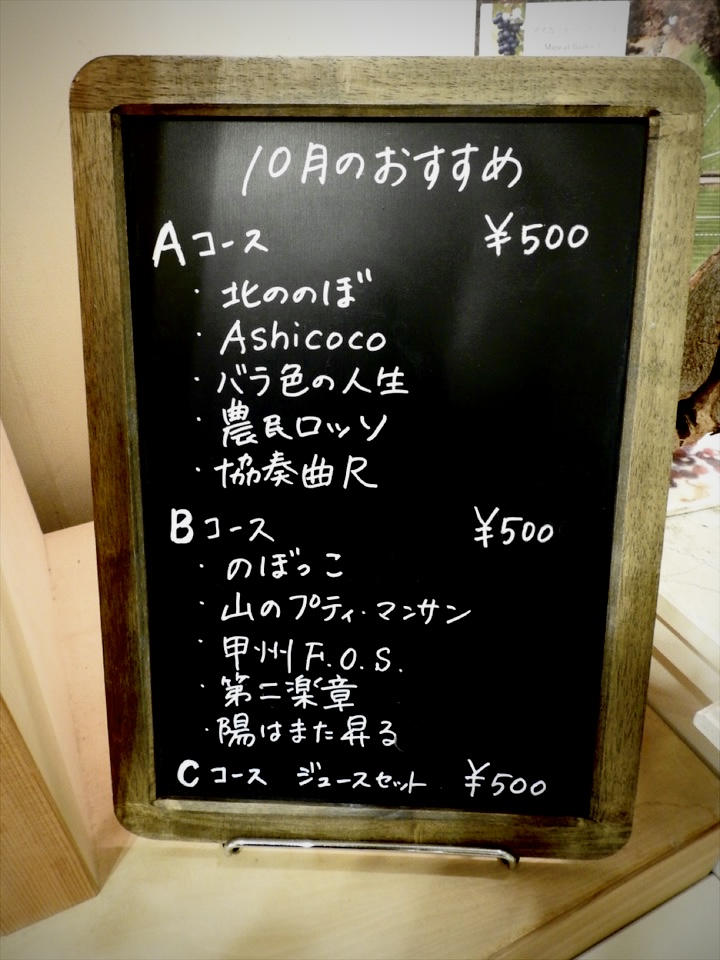 10月のおすすめ
Aコース ¥500
・北ののぼ
・Ashicoco
・バラ色の人生
・農民ロッソ
・協奏曲R
Bコース ¥500
・のぼっこ
・山のプティ・マンサン
・甲州F.O.S.
・第二楽章
・陽はまた昇る
Cコース ジュースセット ¥500